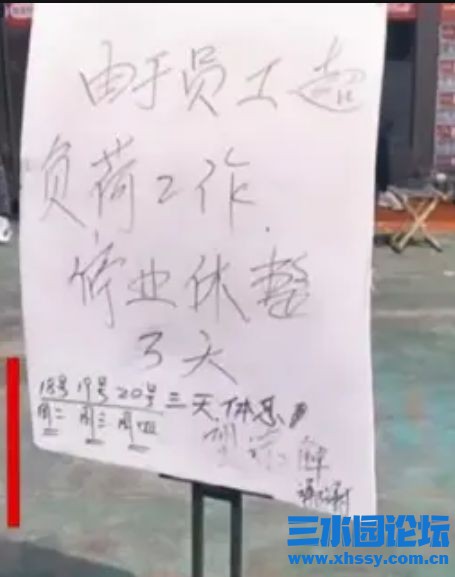 由于员工超
负荷工作.
停业休整
3天
18号 19号 20号 三天休息
周二 周三 周四
望谅解
谢谢
三水园论坛
www.xhssy.com.cn